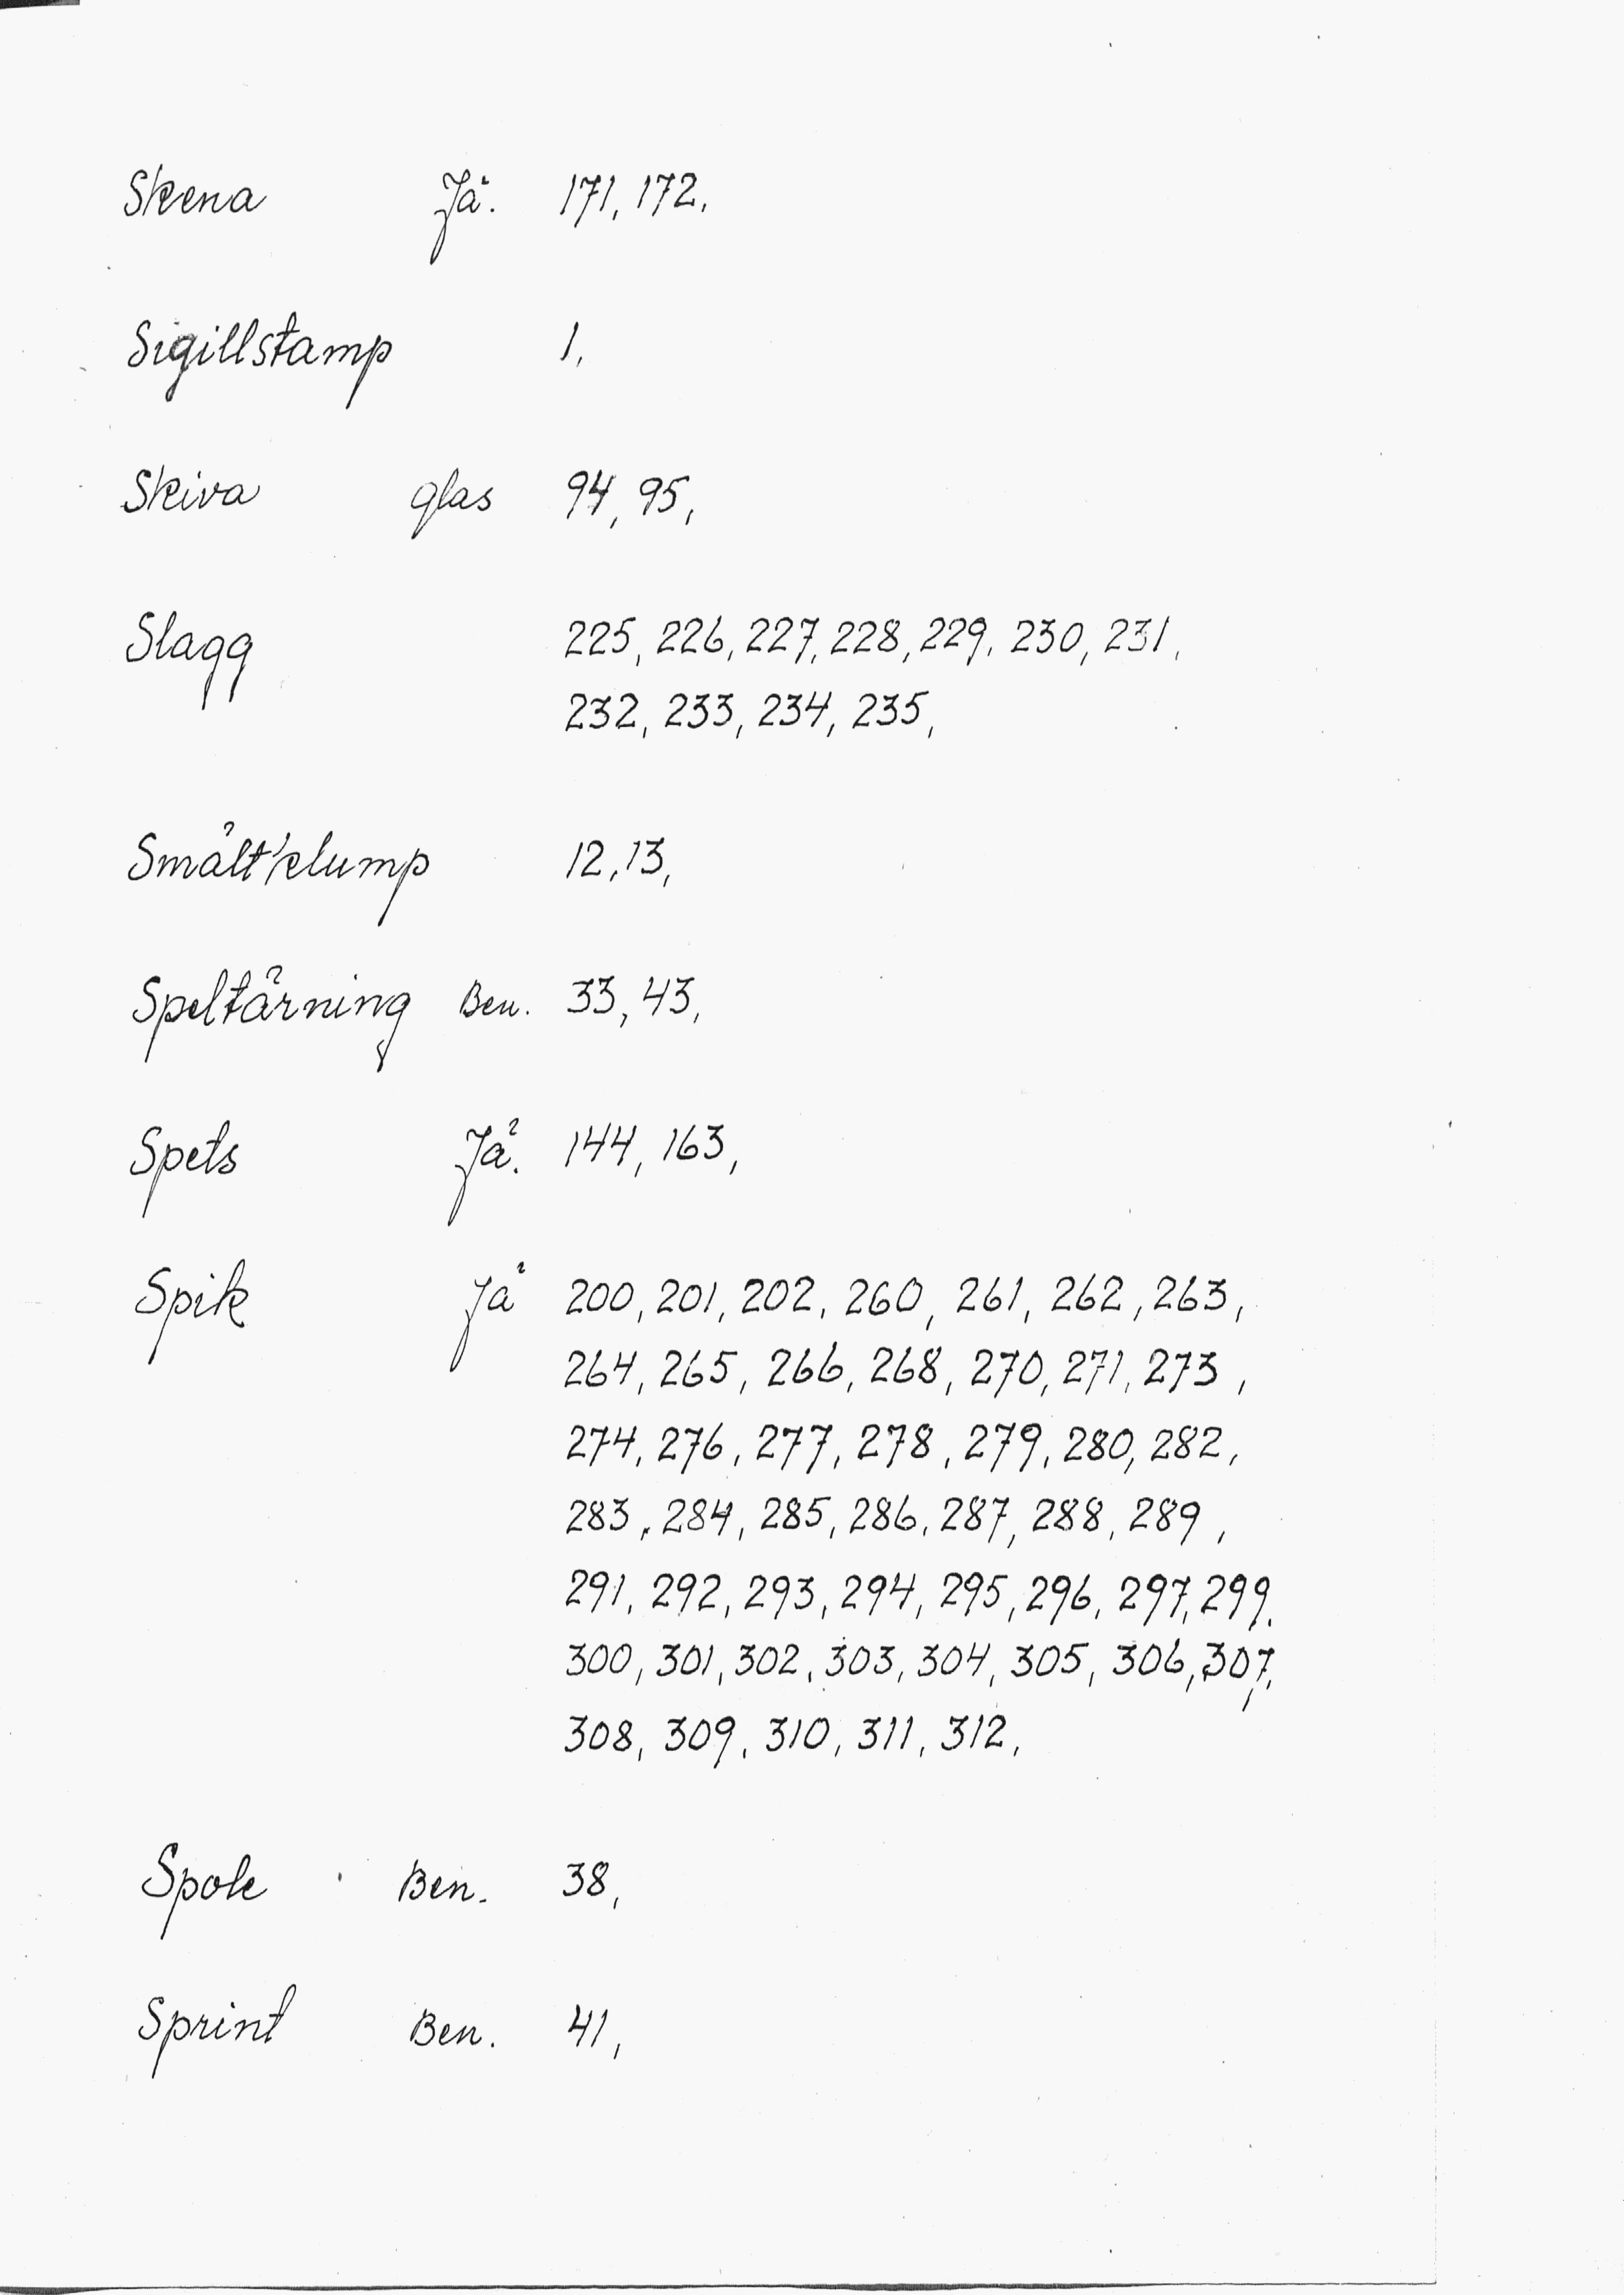 Skena Jä. 171, 172,
Sigillstamp 1,
Skiva glas 94, 95,
Slagg 225, 226, 227, 228, 229, 230, 231,
232, 233, 234, 235,
Smältklump 12, 13,
Speltärning Ben. 33, 43,
Spets Jä. 144, 163,
Spik Jä 200, 201, 202, 260, 261, 262, 263,
264, 265, 266, 268, 270, 271, 273,
274, 276, 277, 278, 279, 280, 282,
283, 284, 285, 286, 287, 288, 289,
291, 292, 293, 294, 295, 296, 297, 299,
300, 301, 302, 303, 304, 305, 306, 307,
308, 309, 310, 311, 312,
Spole Ben. 38,
Sprint Ben. 41,